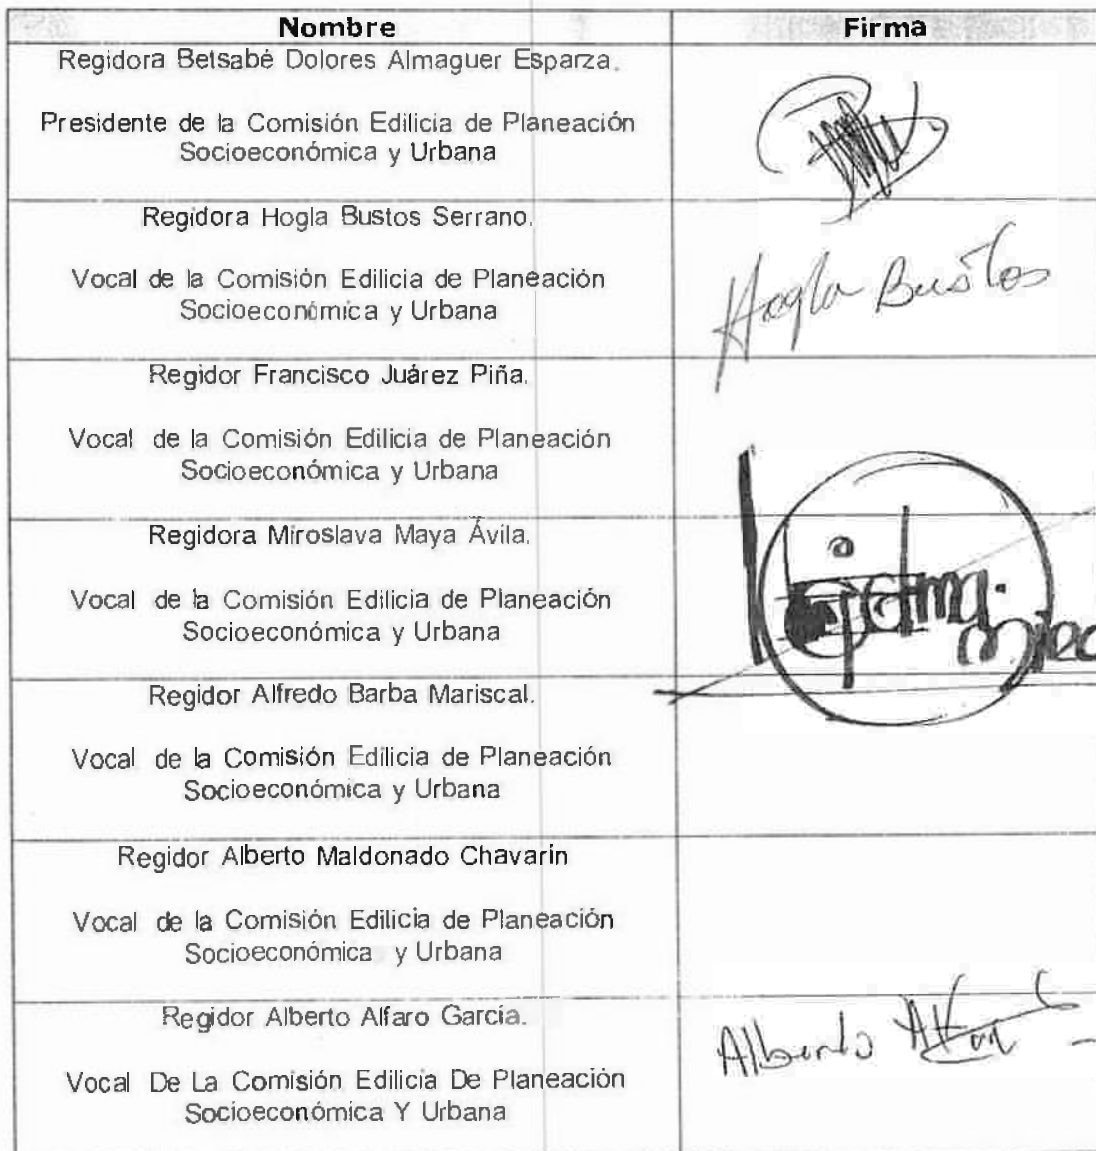 Nombre
Firma
Regidora Betsabé Dolores Almaguer Esparza.
Presidente de la Comisión Edilicia de Planeación
Socioeconómica y Urbana
Regidora Hogla Bustos Serrano.
Vocal de la Comisión Edilicia de Planeación
Socioeconómica y Urbana
Hogla Bustos
Regidor Francisco Juárez Piña.
Vocal de la Comisión Edilicia de Planeación
Socioeconómica y Urbana
Regidora Miroslava Maya Ávila.
Vocal de la Comisión Edilicia de Planeación
Socioeconómica y Urbana
Regidor Alfredo Barba Mariscal.
Vocal de la Comisión Edilicia de Planeación
Socioeconómica y Urbana
Regidor Alberto Maldonado Chavarin
Vocal de la Comisión Edilicia de Planeación
Socioeconómica y Urbana
Regidor Alberto Alfaro García.
Vocal De La Comisión Edilicia De Planeación
Socioeconómica Y Urbana
Alberto